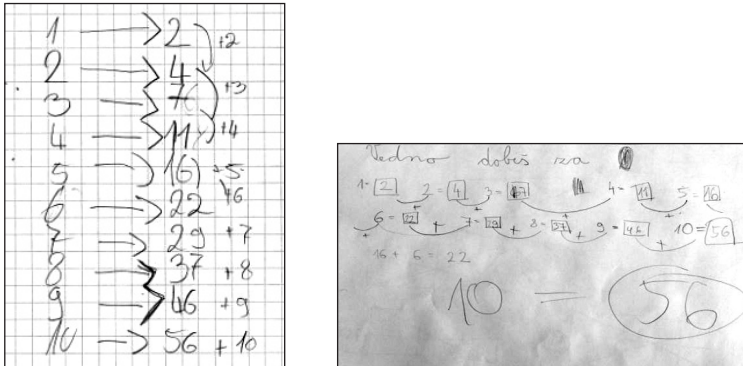 1 → 2 +2
2 → 4 +3
3 → 7
4 → 11 +4
5 → 16 +5
6 → 22 +6
7 → 29 +7
8 → 37 +8
9 → 46 +9
10 → 56 +10
Vedno dobiš za
1=2 2=4 3=7 4=11 5=16
6=22 + 7=29 + 8=37 + 9=46 + 10=56
16+6=22
10=56